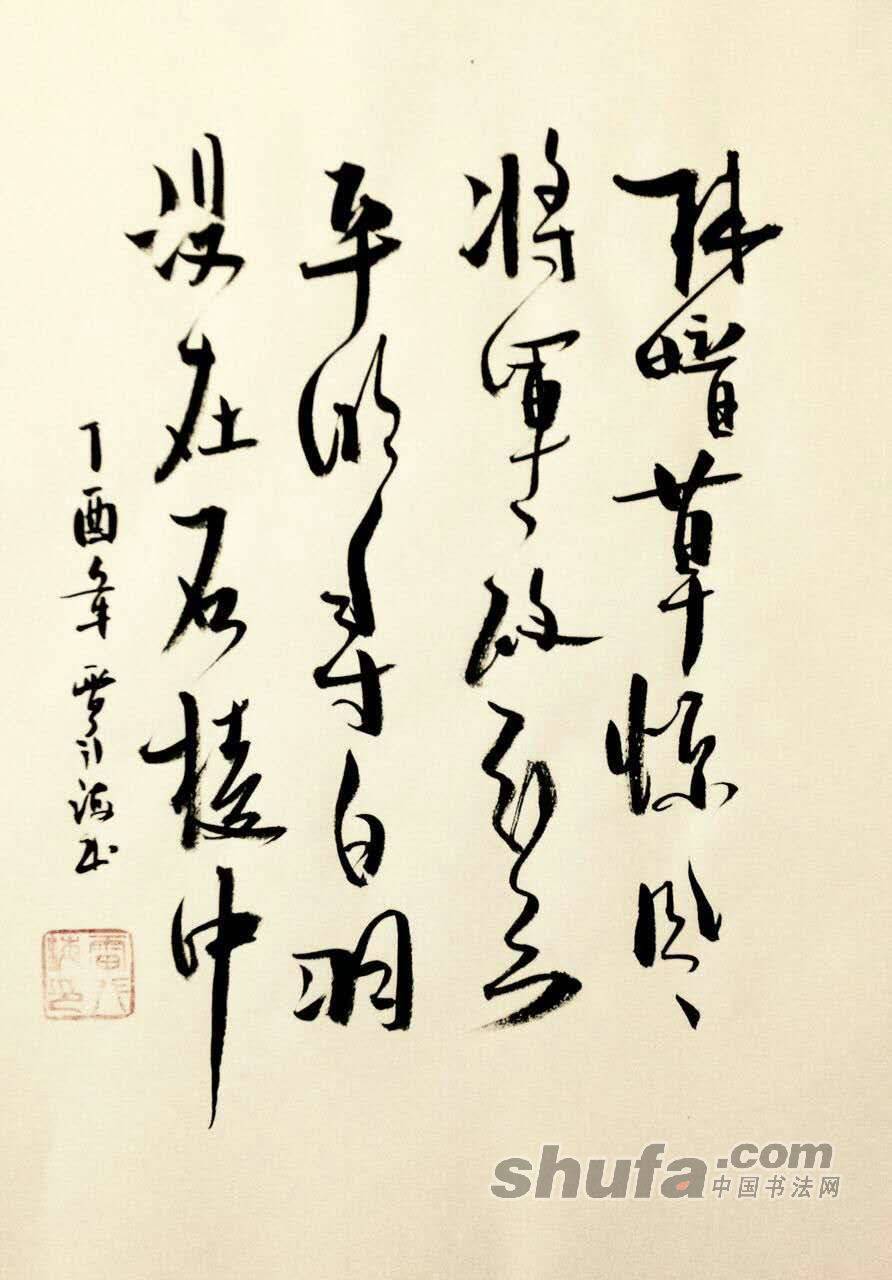 林暗草惊风
将軍夜引弓
平明寻白羽
没在石棱中
丁酉年 雷 书
shufa.com
中国书法网